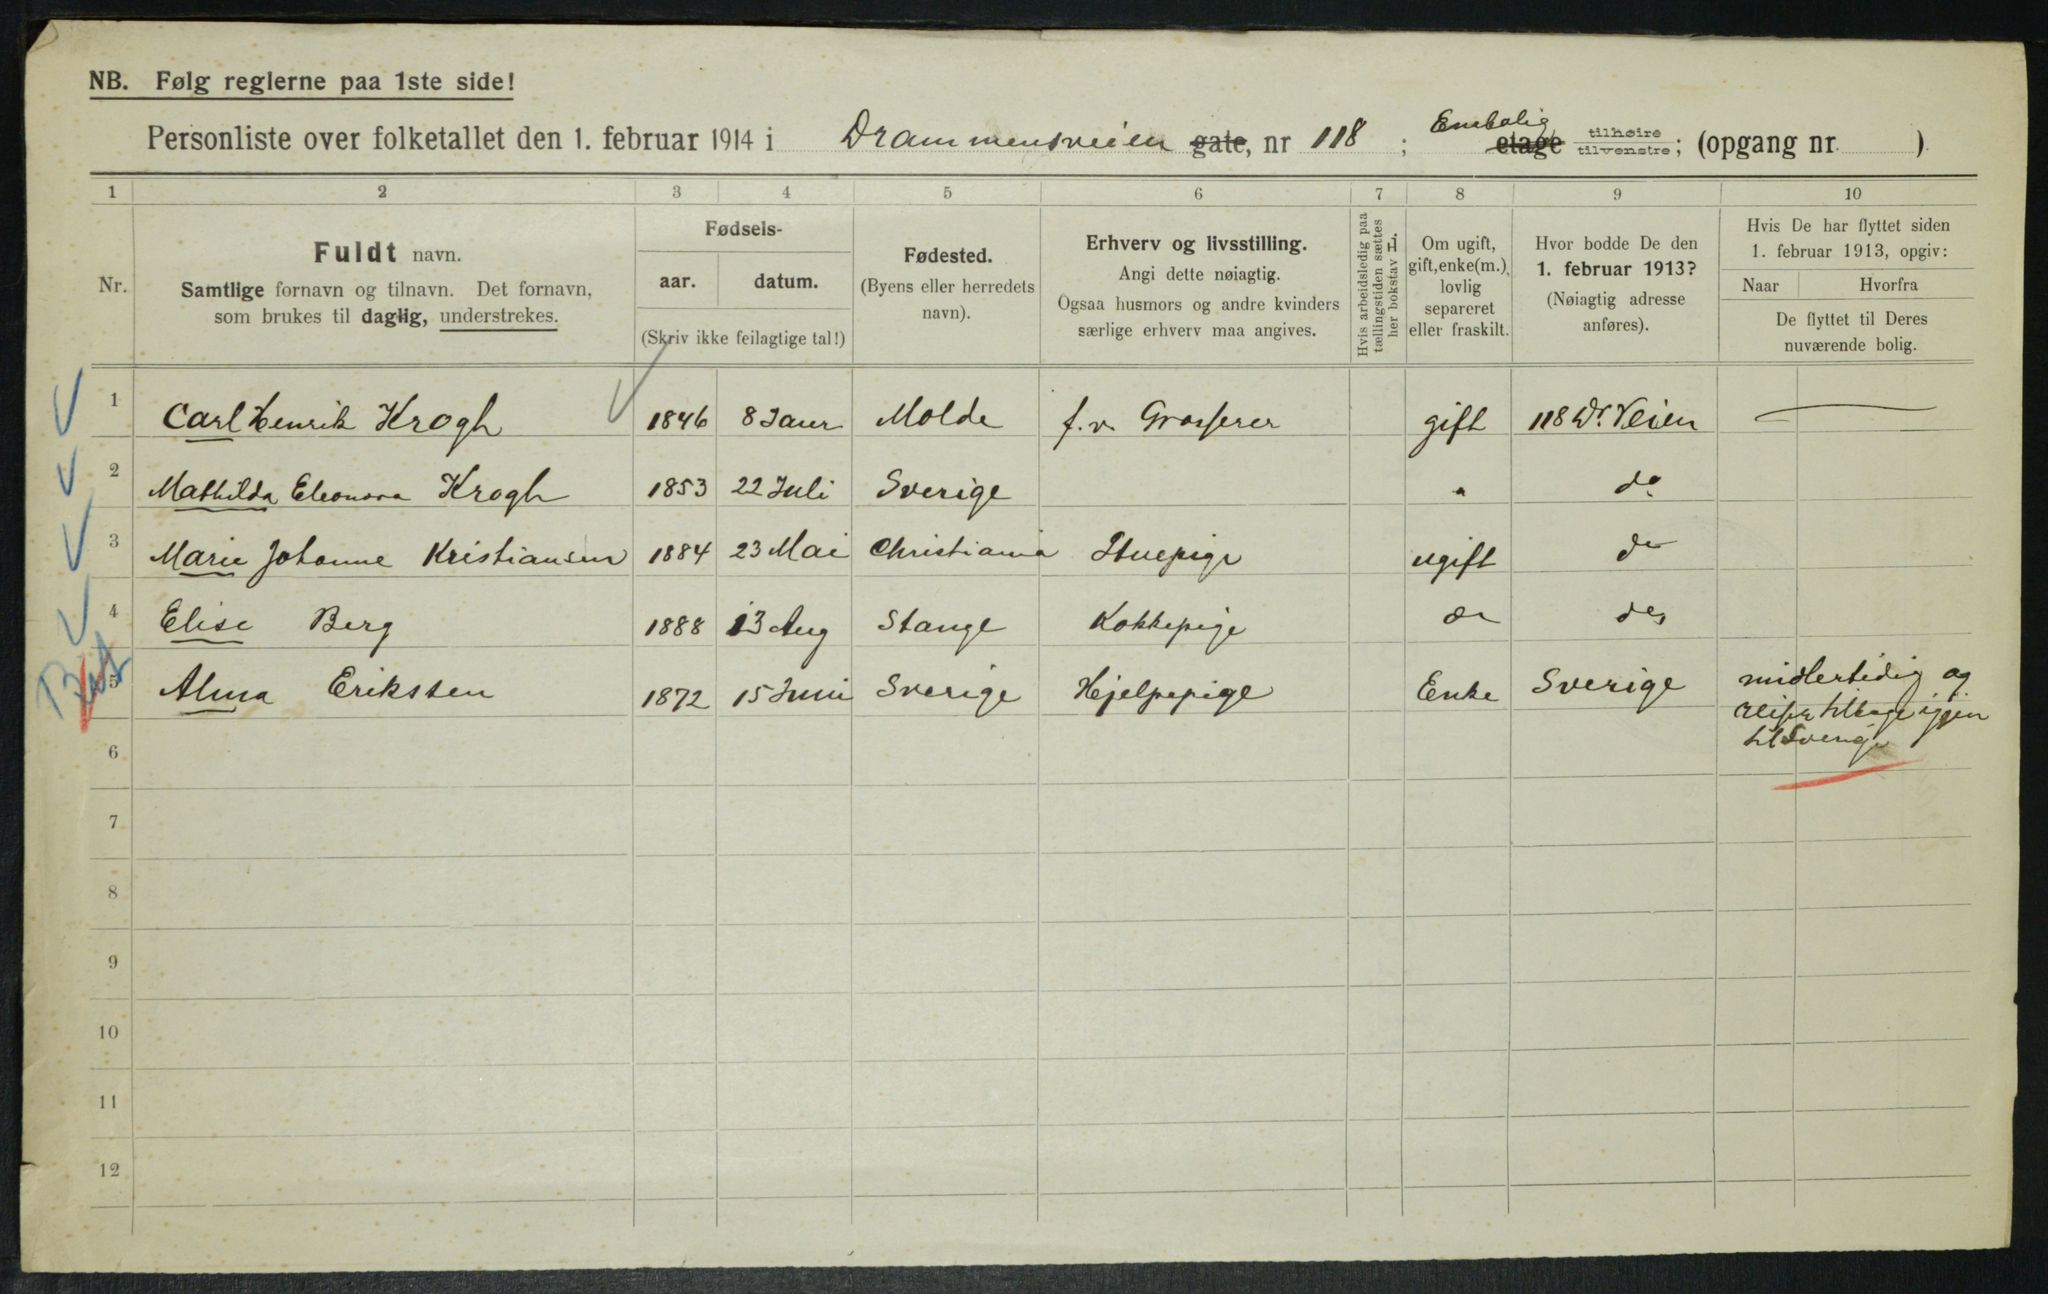 NB. Følg reglerne paa 1ste side!
Personliste over folketallet den 1. februar 1914 i Drammensveien gate, nr 118 ; Enebolig etage tilhøire tilvenstre; (opgang nr. )
1 2 3 4 5 6 7 8 9 10
Nr.
Fuldt navn.
Samtlige fornavn og tilnavn. Det fornavn,
som brukes til daglig, understrekes.
Fødsels-
aar. datum.
(Skriv ikke feilagtige tal!)
Fødested.
(Byens eller herredets
navn).
Erhverv og livsstilling.
Angi dette nøiagtig.
Ogsaa husmors og andre kvinders
særlige erhverv maa angives.
Hvis arbeidsledig paa
tællingstiden sættes
her bokstav L.
Om ugift,
gift, enke(m.),
lovlig
separeret
eller fraskilt.
Hvor bodde De den
1. februar 1913?
(Nøiagtig adresse
anføres).
Hvis De har flyttet siden
1. februar 1913, opgiv:
Naar Hvorfra
De flyttet til Deres
nuværende bolig.
1 Carl Henrik Krogh 1846 8 Januar Molde f.v. Grosserer gift 118 Dr. Veien
2 Mathilda Eleonora Krogh 1853 22 Juli Sverige " do
3 Marie Johanne Kristiansen 1884 23 Mai Christiania Stuepige ugift do
4 Elise Berg 1888 13 Aug Stange Kokkepige do do
5 Alma Eriksten 1872 15 Juni Sverige Hjelpepige Enke Sverige midlertidig og
reiser tilbage igjen
til Sverige
6
7
8
9
10
11
12